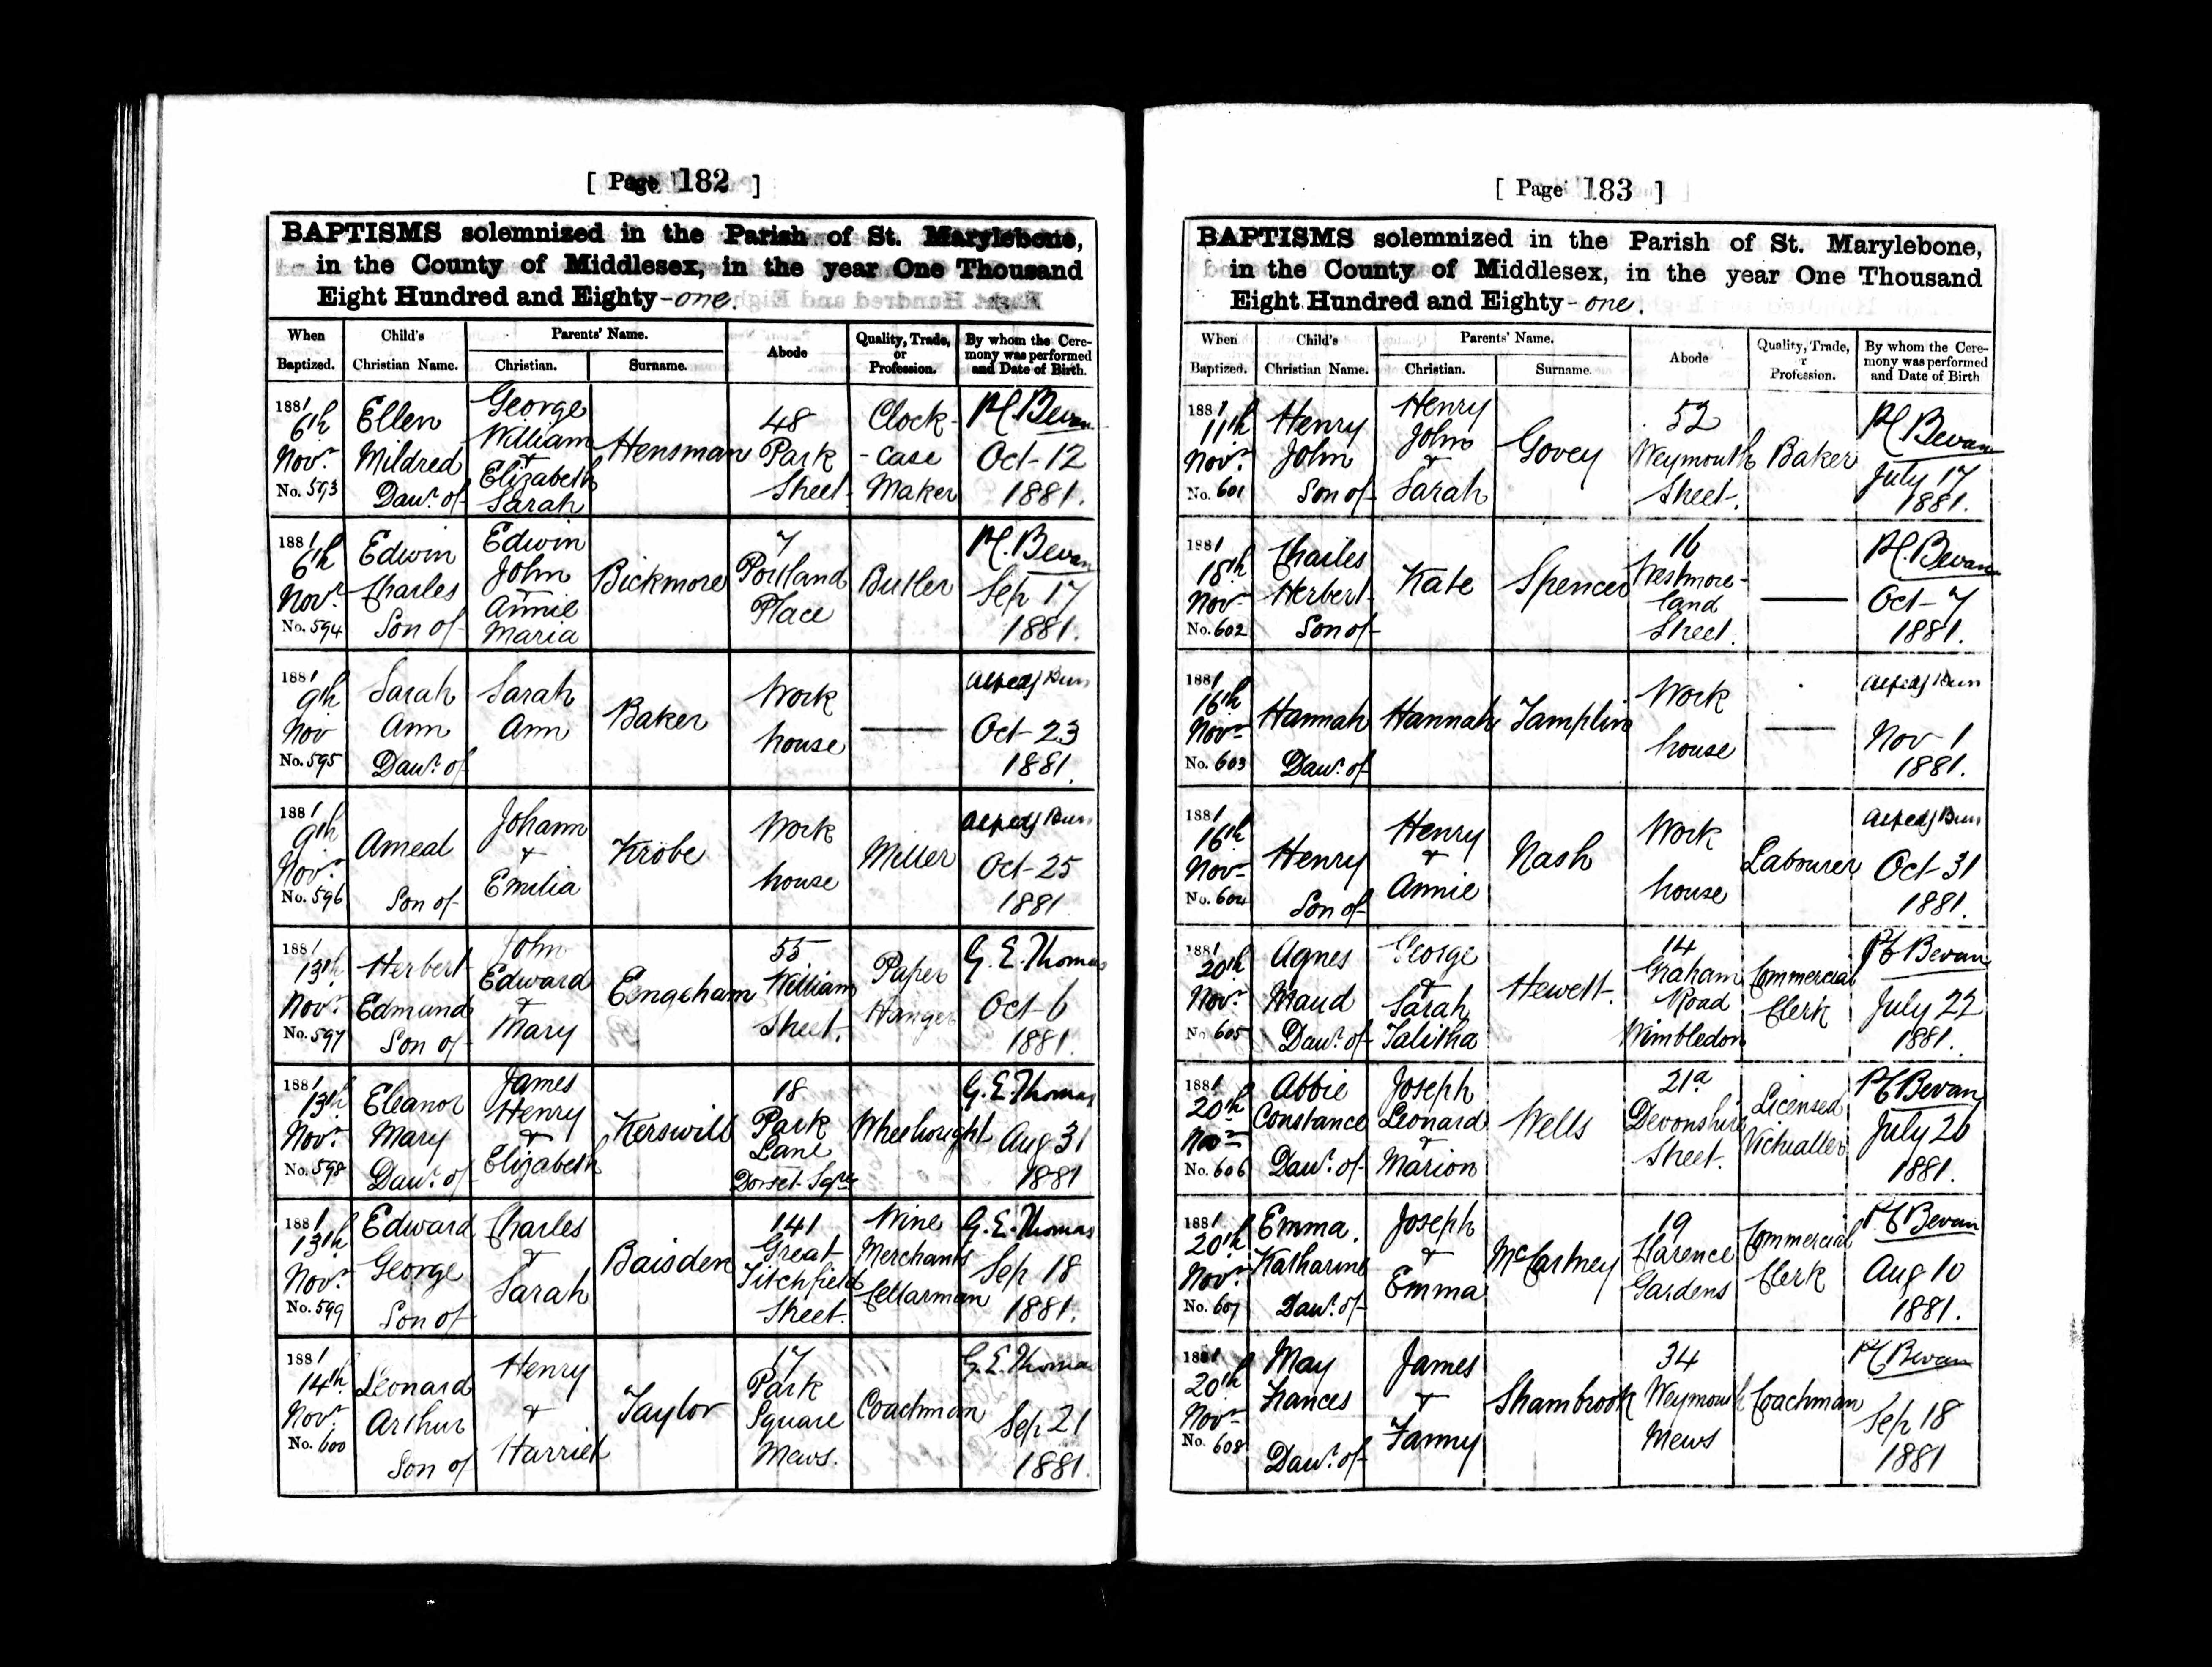 [ Page 182 ]
BAPTISMS solemnized in the Parish of St. Marylebone,
in the County of Middlesex, in the year One Thousand
Eight Hundred and Eighty-one.
When Baptized. Child's Christian Name. Parents' Name. Christian. Surname. Abode Quality, Trade, or Profession. By whom the Ceremony was performed and Date of Birth.
1881 6th Novr. No. 593 Ellen Mildred Dawr. of George William + Elizabeth Sarah Hensman 48 Park Street. Clock-case Maker Bevan Oct 12 1881.
1881 6th Novr. No. 594 Edwin Charles Son of Edwin John + Annie Maria Bickmore 7 Portland Place Butler Bevan Sep 17 1881.
1881 9th Nov No. 595 Sarah Ann Dawr. of Sarah Ann Baker Work house — Oct 23 1881.
1881 9th Novr. No. 596 Ameal Son of Johann + Emilia Krobe Work house Miller Oct 25 1881
1881 13th Novr. No. 597 Herbert Edmund Son of John Edward + Mary 55 William Street. Paper Hanger G. E. Thomas Oct 6 1881.
1881 13th Novr. No. 598 Eleanor Mary Dawr. of James Henry + Elizabeth Kerswill 18 Park Lane Dorset Sqre Wheelwright G. E. Thomas Aug 31 1881
1881 13th Novr. No. 599 Edward George Son of Charles + Sarah Baisden 141 Great Titchfield Street. Wine Merchants Cellarman G. E. Thomas Sep 18 1881.
1881 14th Novr. No. 600 Leonard Arthur Son of Henry + Harriet Taylor 17 Park Square Mews. Coachman G. E. Thomas Sep 21 1881.
[ Page 183 ]
BAPTISMS solemnized in the Parish of St. Marylebone,
in the County of Middlesex, in the year One Thousand
Eight Hundred and Eighty-one.
When Baptized. Child's Christian Name. Parents' Name. Christian. Surname. Abode Quality, Trade, r Profession. By whom the Ceremony was performed and Date of Birth
1881 11th Novr. No. 601 Henry John Son of Henry John + Sarah Govey 52 Weymouth Street. Baker Bevan July 17 1881.
1881 18th Nov No. 602 Charles Herbert Son of Kate Spencer 16 Westmore-land Street. — Bevan Oct 7 1881.
1881 16th Novr No. 603 Hannah Dawr. of Hannah Tamplin Work house — Nov 1 1881.
1881 16th Nov No. 604 Henry Son of Henry + Annie Nash Work house Labourer Oct 31 1881.
1881 20th Novr. No. 605 Agnes Maud Dawr. of George + Sarah Talitha Hewett. 14 Graham Road Wimbledon Commercial Clerk Bevan July 22 1881.
1881 20th Novr No. 606 Abbie Constance Dawr. of Joseph Leonard + Marion Wells 21a Devonshire Street. Licensed Victualler Bevan July 26 1881.
1881 20th Novr. No. 607 Emma Katharine Dawr. of Joseph + Emma McCartney 19 Clarence Gardens Commercial Clerk Bevan Aug 10 1881.
1881 20th Novr No. 608 May Frances Dawr. of James + Fanny Shambrook 34 Weymouth Mews Coachman Bevan Sep 18 1881